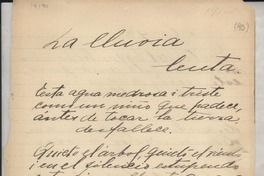 (90)
La lluvia
lenta.
Esta agua medrosa i triste
como un niño que padece,
ántes de tocar la tierra
desfallece.
Quieto el árbol, quieto el viento
i en el silencio estupendo